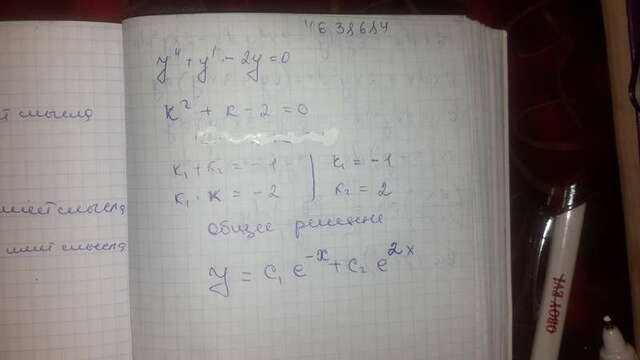 4638684
y" + y' - 2y = 0
k² + k - 2 = 0
k₁ + k₂ = -1 | k₁ = -1
k₁ · k = -2 | k₂ = 2
общее решение
y = C₁ e^{-x} + C₂ e^{2x}
ет смысла
имеет смысла
имет смысла
OBOY EVA